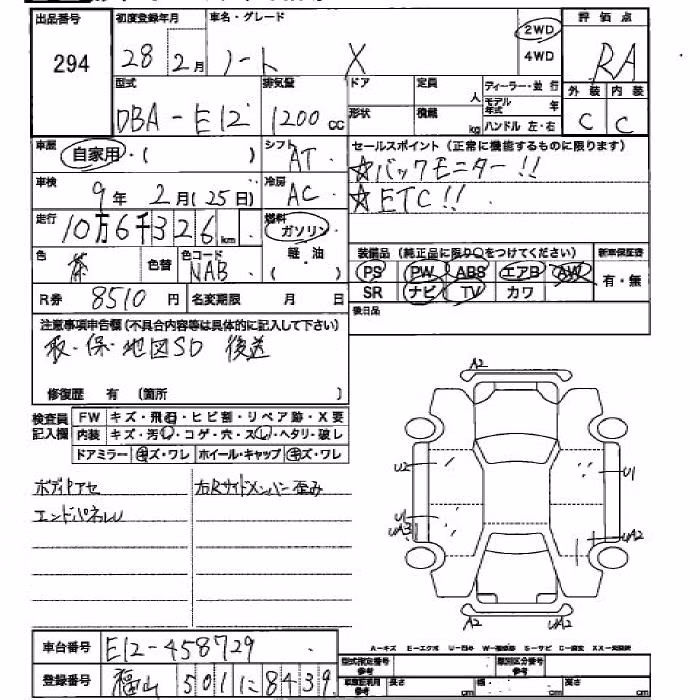 出品番号 初度登録年月 車名・グレード 評価点
294 28 2月 ノート X 2WD 4WD RA
型式 排気量 ドア 定員 人 ディーラー・並行 外装 内装
DBA-E12 1200cc 形状 積載 kg モデル年式 年 ハンドル 左・右 C C
車歴 自家用・( ) シフト AT セールスポイント (正常に機能するものに限ります)
☆バックモニター!!
車検 9年 2月(25日) 冷房 AC ☆ETC!!
走行 10万6千326km 燃料 ガソリン 軽・油 ( )
色 茶 色替 色コード NAB 装備品 (純正品に限り○をつけてください) 新車保証書
PS PW ABS エアB AW 有・無
R券 8510円 名変期限 月 日 SR ナビ TV カワ
注意事項申告欄(不具合内容等は具体的に記入して下さい) 後日品
取・保・地図SD 後送
修復歴 有 (箇所 )
検査員記入欄 FW キズ・飛石・ヒビ割・リペア跡・X要
内装 キズ・汚し・コゲ・穴・スレ・ヘタリ・破レ
ドアミラー キズ・ワレ ホイール・キャップ キズ・ワレ
ボディアセ 右Rサイドメンバー歪み
エンドパネルU
A2
U2 U1
U1
UA3 UA2
A2 UA2
車台番号 E12-458729
A-キズ E-エクボ U-凹み S-サビ
登録番号 福山 501 に 8439
型式指定番号 参考 類別区分番号 参考
長さ cm 幅 cm 高さ cm